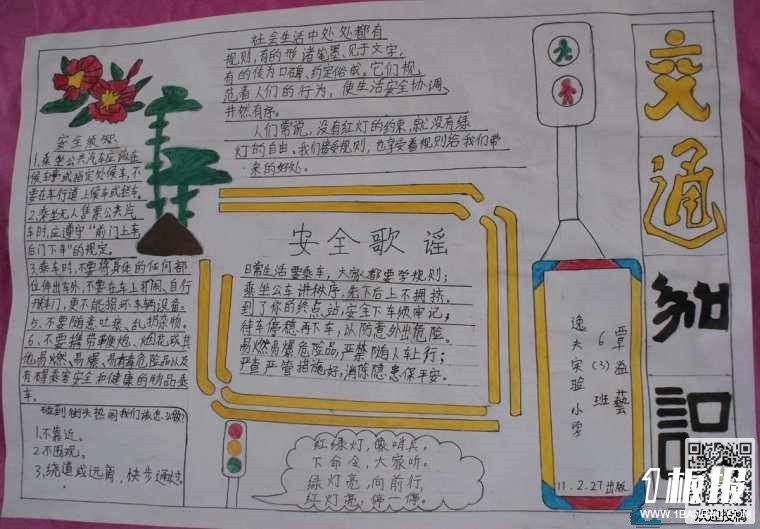 交通知识
社会生活中处处都有
规则,有的形诸笔墨、见于文字,
有的传为口碑、约定俗成。它们规
范着人们的行为,使生活安全协调、
井然有序。
人们常说,没有红灯的约束,就没有绿
灯的自由。我们接受规则,也享受着规则给我们带
来的好处。
安全须知
1、乘坐公共汽车应到在
候车亭或指定处候车,不
要在车行道上候车或拦车。
2、乘坐无人售票公共汽
车时,应遵守“前门上车
后门下车”的规定。
3、乘车时,不要将身体的任何部
位伸出车外,不要在车上打闹、自行
开车门,更不能损坏车辆设备。
5、不要随意吐痰、乱扔杂物。
6、不要携带鞭炮、烟花或其
他易燃、易爆、易有毒危险品以及
有碍乘客安全和健康的物品乘
车。
碰到街头热闹我们该怎么做?
1.不靠近。
2.不围观。
3,绕道或远离,快步通过。
安全歌谣
日常生活要乘车,大家都要学规则;
乘坐公车讲秩序,先下后上不拥挤。
到了你的终点站,安全下车须牢记;
待车停稳再下车,以防意外出危险。
易燃易爆危险品,严禁随人车上行;
严查严管措施好,消除隐患保平安。
红绿灯,像哨兵,
下命令,大家听。
绿灯亮,向前行,
红灯亮,停一停。
逸夫实验小学
6(3)班
覃益艺
11.2.27出版
1板报
WWW.1BANBAO.COM